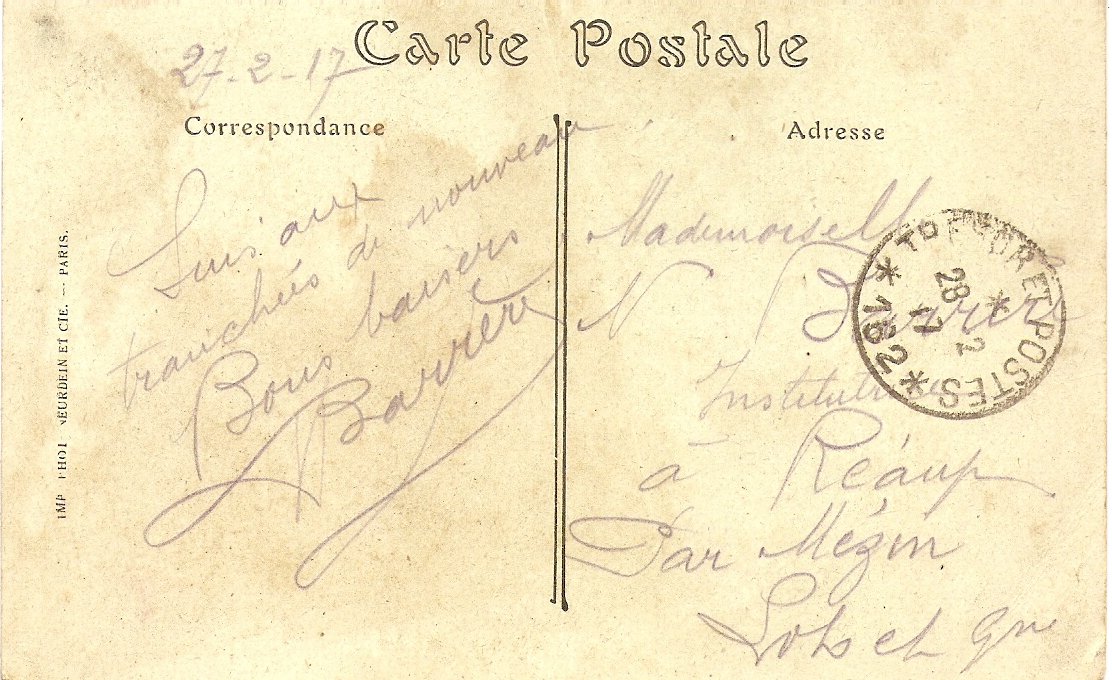 Carte Postale
27-2-17
Correspondance
Suis aux
tranchées de nouveau
Bons baisers
Barrère
Adresse
Mademoiselle
N Barrère
à Réaup
Par Mézin
Lot et Gne
TRESOR ET POSTES
* 182 *
28 2
17
IMP PHOT NEURDEIN ET CIE. — PARIS.